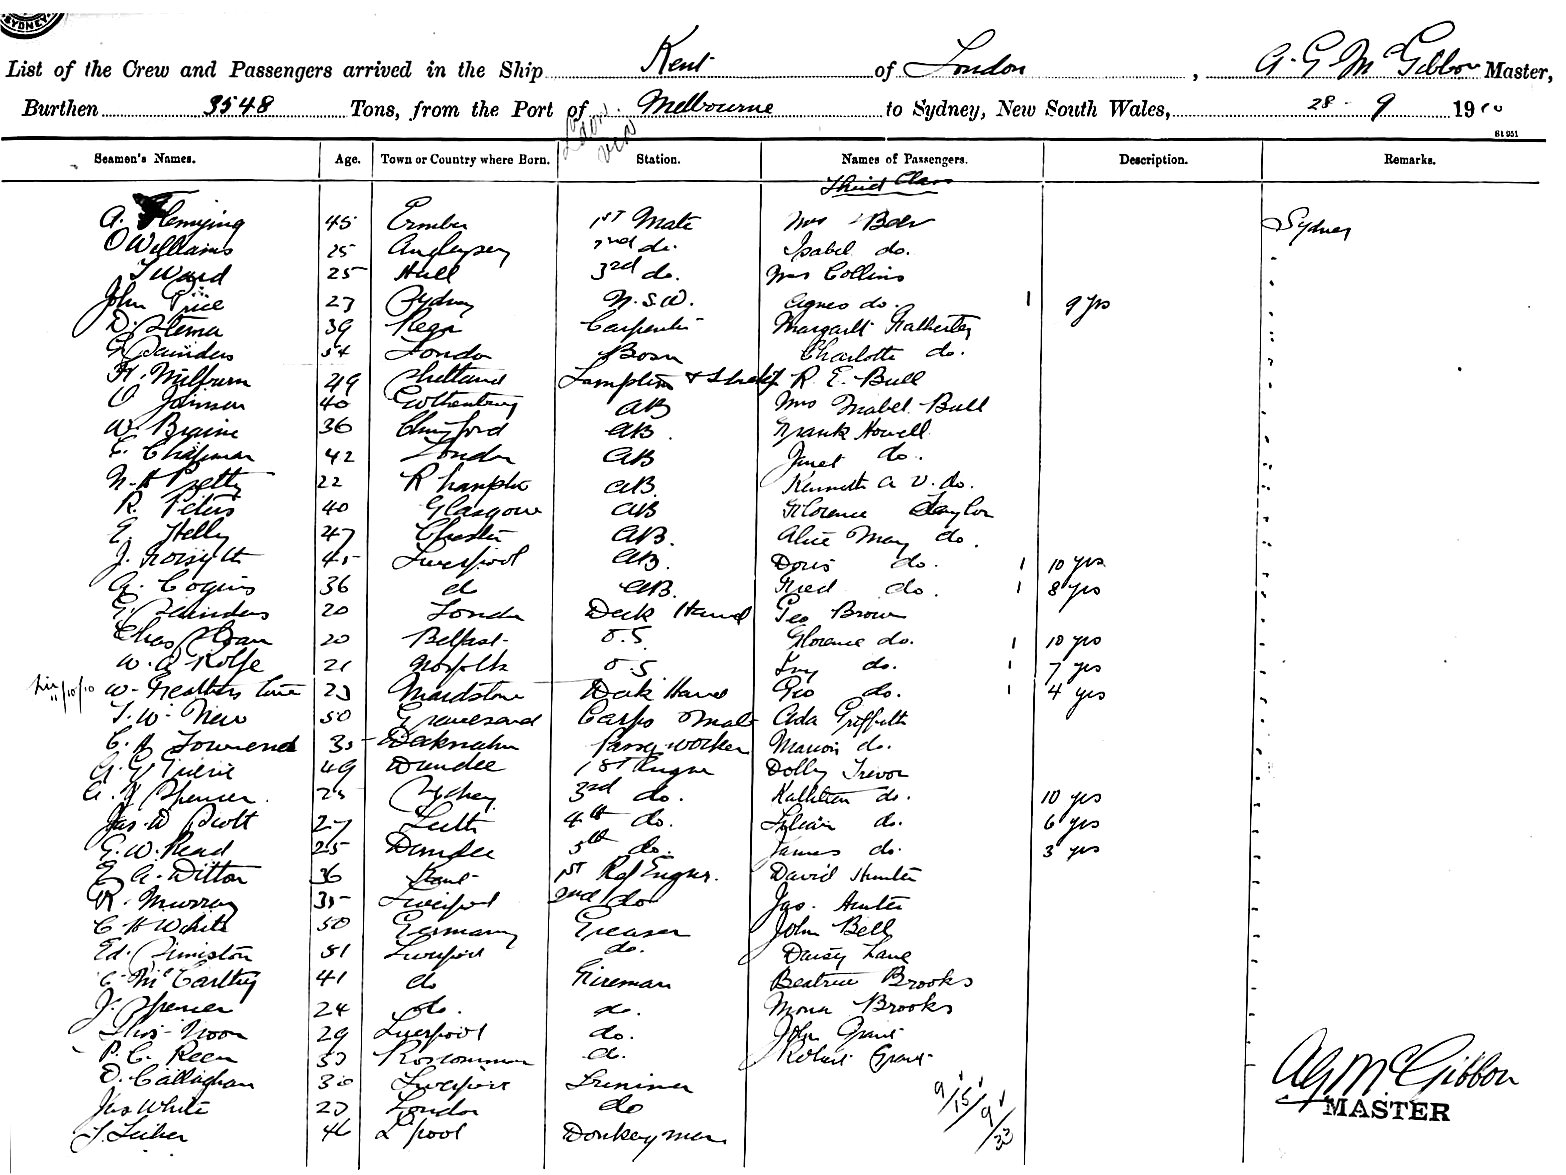 SYDNEY
List of the Crew and Passengers arrived in the Ship Kent of London, A. G. McGibbon Master,
Burthen 3548 Tons, from the Port of Melbourne to Sydney, New South Wales, 28 - 9 1910
61951
Seamen's Names. Age. Town or Country where Born. Station. Names of Passengers. Description. Remarks.
Third Class
A. Flemying 45 1st Mate Mrs Sydney
O Williams 25 Anglesey 2nd do. Isabel do.
T Ward 25 Hull 3rd do. Mrs Collins
John Price 23 Sydney N.S.W. Agnes do. 1 9 yrs
D. 39 Carpenter Margarett
G Saunders 54 London Bosn Charlotte do.
H. Milburn 49 Shetland R. E. Bull
O Johnson 40 Gothenburg AB Mrs Mabel Bull
W. Braine 36 AB. Frank Howell
E. Chapman 42 London AB Janet do.
Pretty 22 AB. Kenneth A V. do.
R. Peters 40 Glasgow AB Florence Taylor
E. Helly 47 Chester AB. Alice May do.
J. Forsyth 45 Liverpool AB. Doris do. 1 10 yrs
A. Coguis 36 do AB. Fred do. 1 8 yrs
G. Saunders 20 London Deck Hand Geo Brown
Chas Sloan 20 Belfast O.S. Florence do. 1 10 yrs
W. G. Rolfe 21 Norfolk O.S Ivy do. 1 7 yrs
11/10/10 W. 23 Maidstone Deck Hand Geo do. 1 4 yrs
T. W. New 50 Gravesend Carps Mate Ada Griffith
C. H Townend 35 Passg. worker Marion do.
49 Dundee 1st Engnr Dolly Trevor
A. J Spencer. 25 Sydney 3rd do. Kathleen do. 10 yrs
Jas. W Scott 27 Leith 4th do. Lilian do. 6 yrs
G. W. Read 25 Dundee 5th do. James do. 3 yrs
E A. Ditton 36 Kent 1st Ref Engnr. David Hunter
R. Murray 35 Liverpool 2nd do Jas. Hunter
C H White 50 Germany Greaser John Bell
Ed. 51 Liverpool do. Daisy Lane
C. McCarthy 41 do Fireman Beatrice Brooks
J. Spencer 24 do. do. Mona Brooks
Thos Moon 29 Liverpool do. John Grant
P. C. Keen 33 Roscommon do. Robert Grant
D. Callaghan 30 Liverpool Trimmer
Jas White 23 London do
46 L'pool Donkeyman
9/15/9/33
A G McGibbon
MASTER